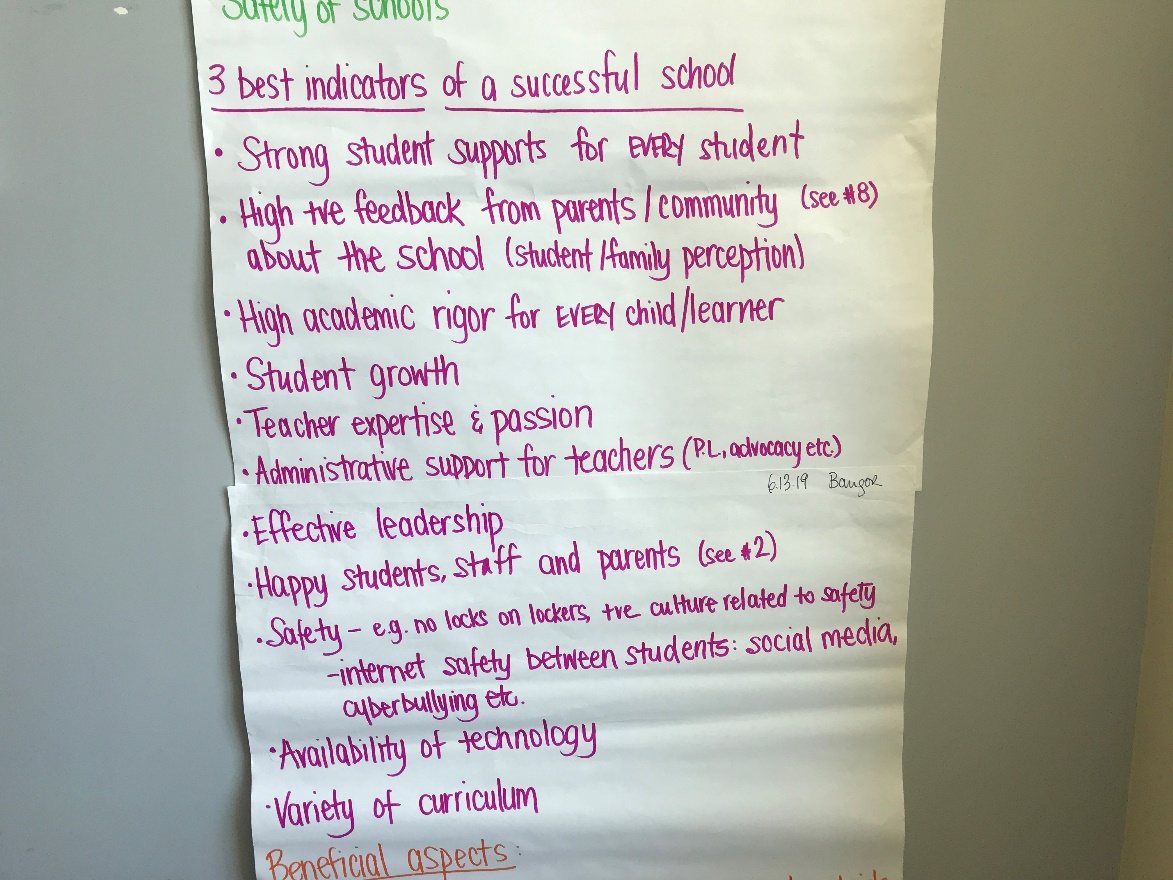 Safety of schools
3 best indicators of a successful school
• Strong student supports for EVERY student
• High +ve feedback from parents/community (see #8)
about the school (student/family perception)
• High academic rigor for EVERY child/learner
• Student growth
• Teacher expertise & passion
• Administrative support for teachers (P.L., advocacy etc.)
6.13.19 Bangor
• Effective leadership
• Happy students, staff and parents (see #2)
• Safety - e.g. no locks on lockers, +ve culture related to safety
- internet safety between students: social media,
cyberbullying etc.
• Availability of technology
• Variety of curriculum
Beneficial aspects: